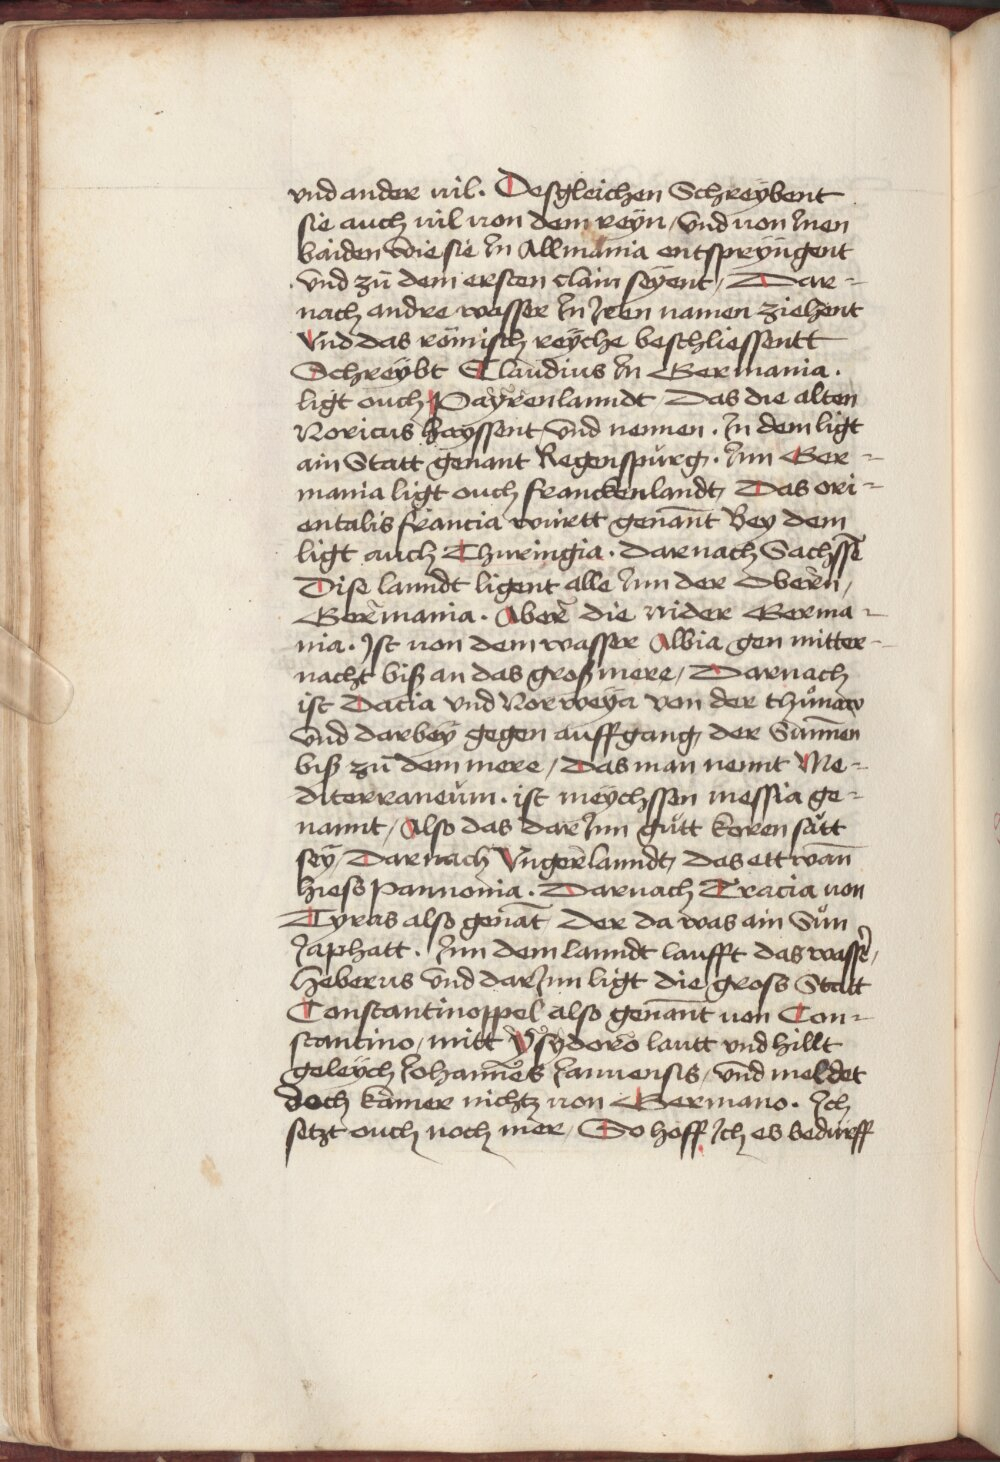 vnd ander vil. Desgleichen Schreÿbent
sie auch vil von dem reyn / vnd von Inen
baiden wie sie In Allmania entsprÿngent
vnd zů dem ersten clain seÿent / Dar-
nach andre wasser In Iren namen ziehent
Vnd das römisch reÿche beschliessentt
Schreÿbt Claudius In Germania.
ligt ouch Paÿrenlanndt Das die alten
Noricus hayssent vnd nennen. In dem ligt
ain Statt genant Regenspurg. Inn Ger-
mania ligt ouch franckenlandt, Das ori-
entalis francia wirtt genañt Bey dem
ligt auch Thuringia. darnach Sachssē
Dise lanndt ligent alle Inn der Obern /
Germania. Aber die nider Germa-
nia. Ist von dem wasser Albia gen mitter-
nacht biß an das groß mere / Darnach
ist Dacia vnd Norweÿa von der thůnaw
vnd darbeÿ gegen auffgang der Sunnen
biß zů dem mere / Das man nennt Me-
diterraneŭm. ist meÿchssen messia ge-
nannt / Also das dar Inn gůtt koren sått
seÿ / Darnach Vngerlanndt, das ettwañ
hiess Pannonia. Darnach Tracia von
Tyras also genāt der da was ain Sůn
Iaphatt. Inn dem lanndt laufft das wasser,
heberus vnd dar Inn ligt die gross Statt
Constantinoppel also genañt von Con-
stantino / mitt Ysydoro lautt vnd hillt
geleÿch Iohannes Ianuensis / vnd meldet
doch kainer nichtz von Germano. Ich
setzt ouch noch mer / So hoff Ich es bedürff